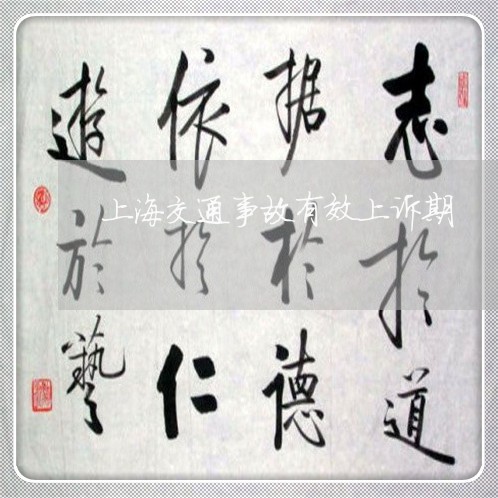 志於道
据於德
依於仁
遊於藝
上海交通事故有效上诉期